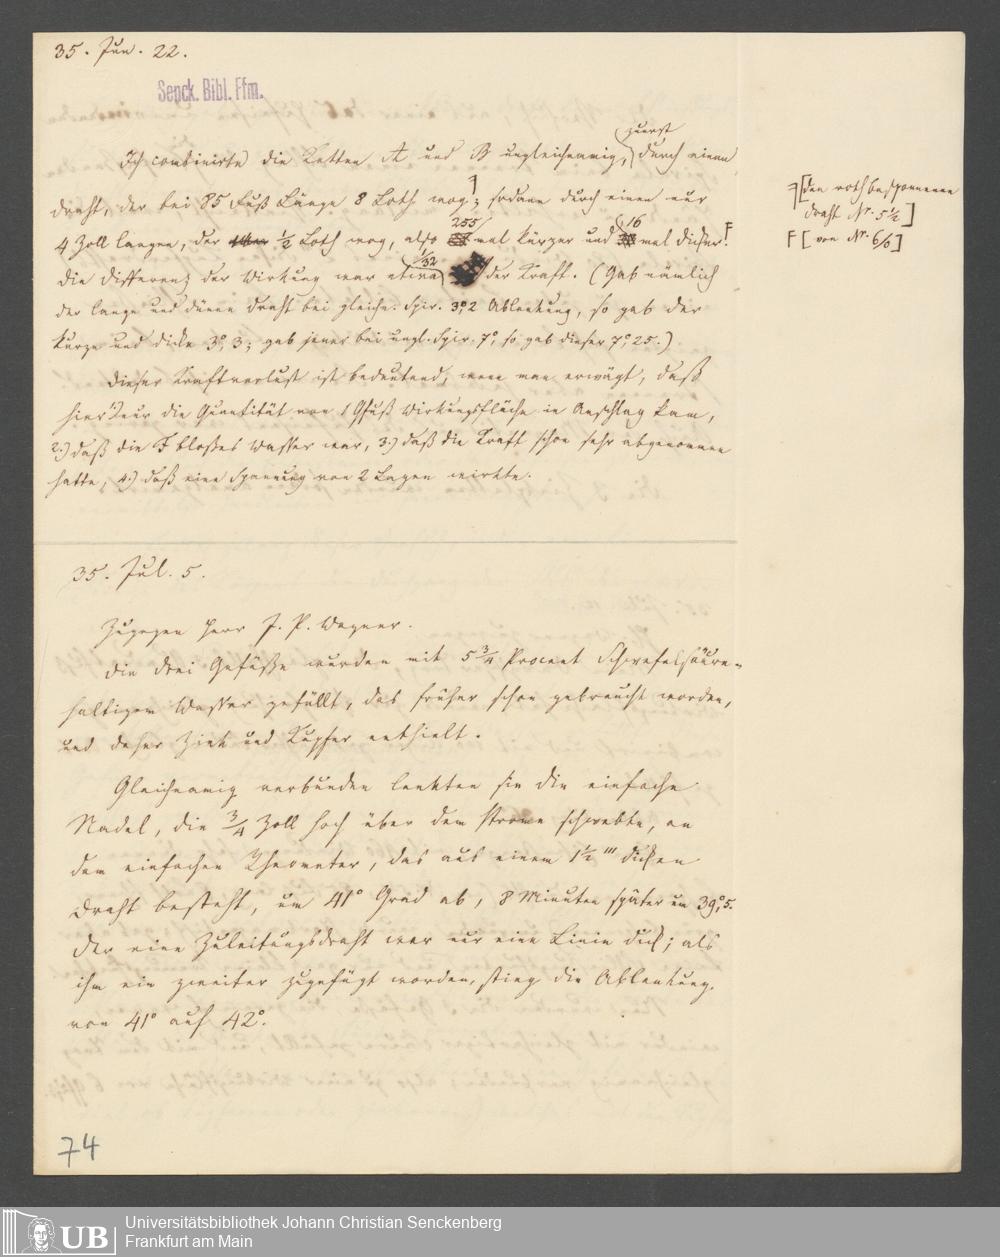 35. Jun. 22.
Senck. Bibl. Ffm.
zuerst
Ich combinirte die Ketten A und B ungleichnamig, durch einen
Draht, der bei 85 Fuß Länge 8 Loth wog; sodann durch einen nur
255 16
4 Zoll langen, der ½ Loth wog, also mal kürzer und mal dicker. F
1/32
Die Differenz der Wirkung war etwa der Kraft. (Gab nämlich
der lange und dünne Draht bei gleichn. Spir. 3°,2 Ablenkung, so gab der
kurze und dicke 3°,3; gab jener bei ungl. Spir. 7°, so gab dieser 7°,25.)
Dieser Kraftverlust ist bedeutend, wenn man erwägt, daß
hier 1.) nur die Quantität von 1 Qfuß Wirkungsfläche in Anschlag kam,
2.) daß die F bloßes Wasser war, 3.) daß die Kraft schon sehr abgenommen
hatte, 4.) daß eine Spannung von 2 Lagen wirkte.
[den roth besponnenen
Draht Nr. 5½]
F [von Nr. 6/0]
35. Jul. 5.
Zugegen Herr J. P. Wagner.
Die drei Gefäße wurden mit 5¾ Procent Schwefelsäure-
haltigem Wasser gefüllt, das früher schon gebraucht worden,
und daher Zink und Kupfer enthielt.
Gleichnamig verbunden lenkten sie die einfache
Nadel, die ¾ Zoll hoch über dem Strome schwebte, an
dem einfachen Rheometer, das aus einem 1½''' dicken
Draht besteht, um 41° Grad ab, 8 Minuten später um 39°,5.
Der eine Zuleitungsdraht war nur eine Linie dick; als
ihm ein zweiter zugefügt worden, stieg die Ablenkung
von 41° auf 42°.
74
UB
Universitätsbibliothek Johann Christian Senckenberg
Frankfurt am Main